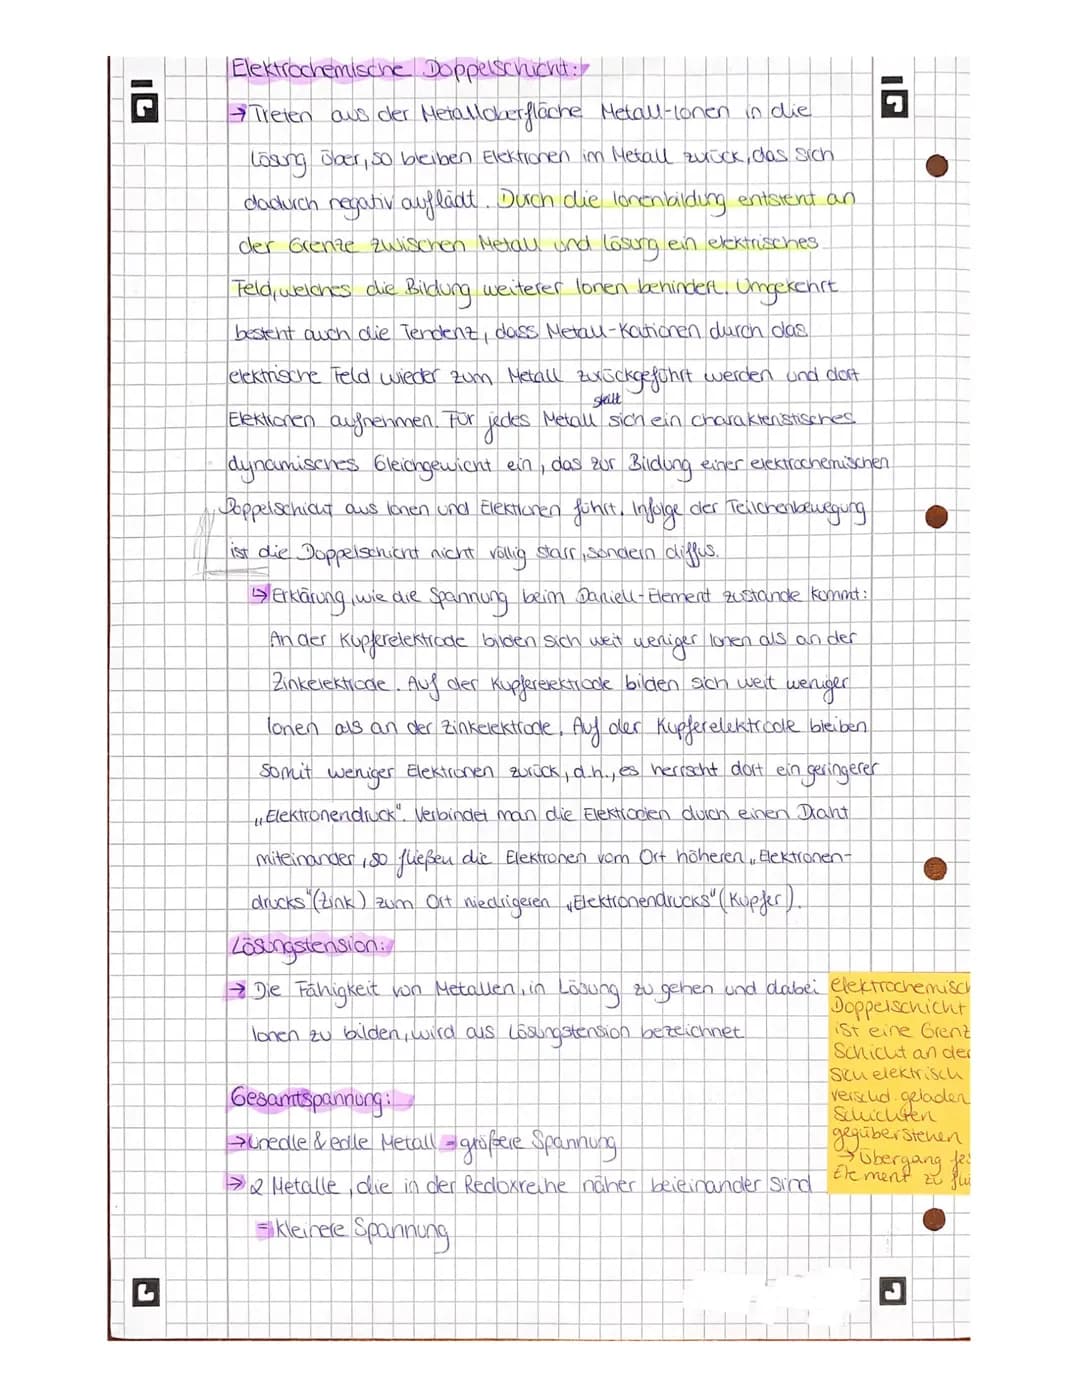 Elektrochemische Doppelschicht:
→ Treten aus der Metalloberfläche Metall-Ionen in die
Lösung über, so bleiben Elektronen im Metall zurück, das sich
dadurch negativ auflädt. Durch die Ionenbildung entsteht an
der Grenze zwischen Metall und Lösung ein elektrisches
Feld, welches die Bildung weiterer Ionen behindert. Umgekehrt
besteht auch die Tendenz, dass Metall-Kationen durch das
elektrische Feld wieder zum Metall zurückgeführt werden und dort
stellt
Elektronen aufnehmen. Für jedes Metall sich ein charakteristisches
dynamisches Gleichgewicht ein, das zur Bildung einer elektrochemischen
Doppelschicht aus Ionen und Elektronen führt. Infolge der Teilchenbewegung
ist die Doppelschicht nicht völlig starr, sondern diffus.
↳ Erklärung, wie die Spannung beim Daniell-Element zustande kommt:
An der Kupferelektrode bilden sich weit weniger Ionen als an der
Zinkelektrode. Auf der Kupferelektrode bilden sich weit weniger
Ionen als an der Zinkelektrode. Auf der Kupferelektrode bleiben
somit weniger Elektronen zurück, d.h., es herrscht dort ein geringerer
„Elektronendruck". Verbindet man die Elektroden durch einen Draht
miteinander, so fließen die Elektronen vom Ort höheren „Elektronen-
drucks" (Zink) zum Ort niedrigeren „Elektronendrucks" (Kupfer).
Lösungstension:
→ Die Fähigkeit von Metallen, in Lösung zu gehen und dabei
Ionen zu bilden, wird als Lösungstension bezeichnet
Gesamtspannung:
→ Unedle & edle Metall = größere Spannung
→ 2 Metalle, die in der Redoxreihe näher beieinander sind
= kleinere Spannung
elektrochemisch
Doppelschicht
ist eine Grenz
Schicht an der
sich elektrisch
verschd. geladen
Schichten
gegüberstehen
→ Übergang fes
Element zu flü